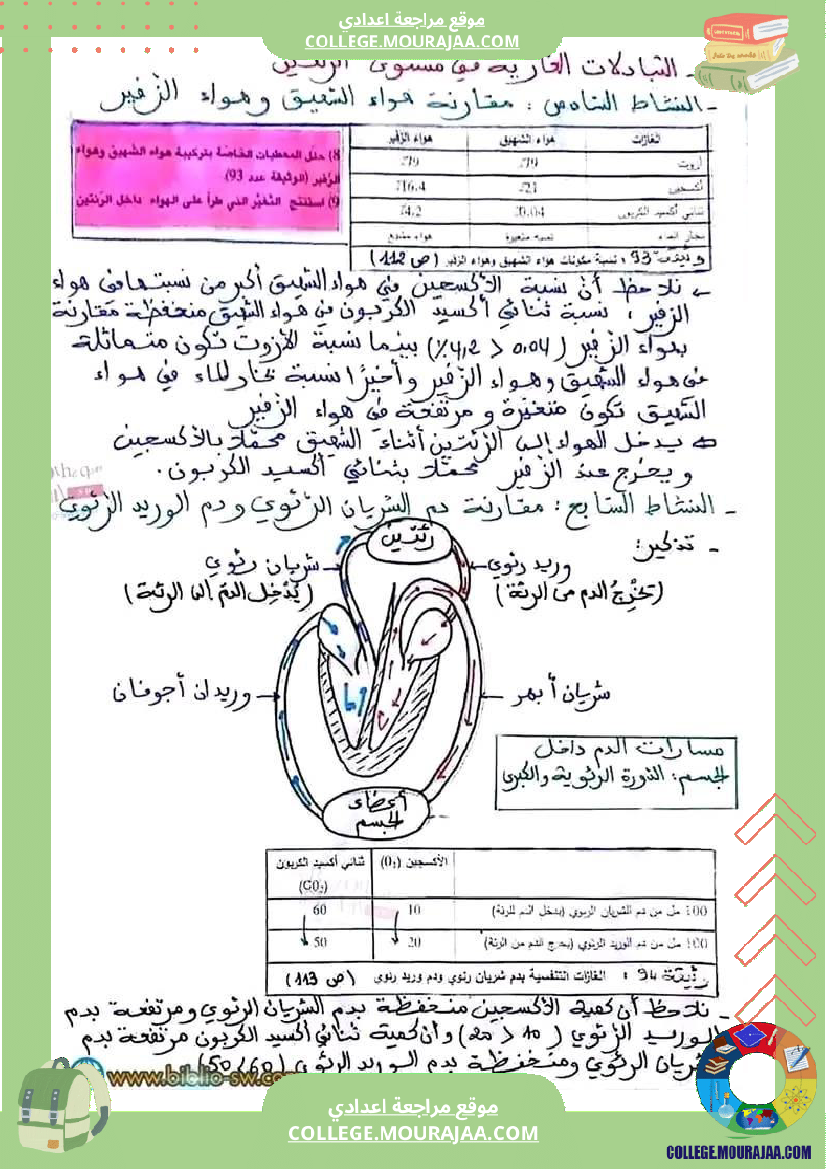 موقع مراجعة اعدادي
COLLEGE.MOURAJAA.COM
- التبادلات الغازية في مستوى الرئتين
- النشاط السادس : مقارنة هواء الشهيق وهواء الزفير
8) حلل المعطيات الخاصة بتركيبة هواء الشهيق وهواء
الزفير (الوثيقة عدد 93)
9) استنتج التغير الذي طرأ على الهواء داخل الرئتين
الغازات هواء الشهيق هواء الزفير
أزوت %79 %79
أكسجين %21 %16.4
ثنائي أكسيد الكربون %0.04 %4.2
بخار الماء نسبة متغيرة هواء مشبع
وثيقة 93 : نسبة مكونات هواء الشهيق وهواء الزفير (ص 112)
نلاحظ أن نسبة الأكسجين في هواء الشهيق أكبر من نسبتها في هواء
الزفير ، نسبة ثنائي أكسيد الكربون في هواء الشهيق منخفضة مقارنة
بهواء الزفير (0,04 < 4,2%) بينما نسبة الأزوت تكون متماثلة
في هواء الشهيق وهواء الزفير وأخيرًا نسبة بخار الماء في هواء
الشهيق تكون متغيرة و مرتفعة في هواء الزفير
⇐ يدخل الهواء إلى الرئتين أثناء الشهيق محملا بالأكسجين
ويخرج عند الزفير محملا بثنائي أكسيد الكربون.
- النشاط السابع : مقارنة دم الشريان الرئوي ودم الوريد الرئوي
- تذكير:
رئتين
شريان رئوي
(يُدْخِل الدم إلى الرئة)
وريد رئوي
(تخْرِجُ الدم من الرئة)
وريدان أجوفان
شريان أبهر
أعضاء
الجسم
مسارات الدم داخل
الجسم: الدورة الرئوية والكبرى
الأكسجين (O₂) ثنائي أكسيد الكربون
(CO₂)
100 مل من دم الشريان الرئوي (يدخل الدم للرئة) 10 60
100 مل من دم الوريد الرئوي (يخرج الدم من الرئة) 20 50
وثيقة 94 : الغازات التنفسية بدم شريان رئوي ودم وريد رئوي (ص 113)
- نلاحظ أن كمية الأكسجين منخفظة بدم الشريان الرئوي ومرتفعة بدم
الوريد الرئوي (10 < 20) وأن كمية ثنائي أكسيد الكربون مرتفعة بدم
شريان الرئوي ومنخفظة بدم الوريد الرئوي (60 / 50)
www.biblio-sw.com
موقع مراجعة اعدادي
COLLEGE.MOURAJAA.COM
COLLEGE.MOURAJAA.COM